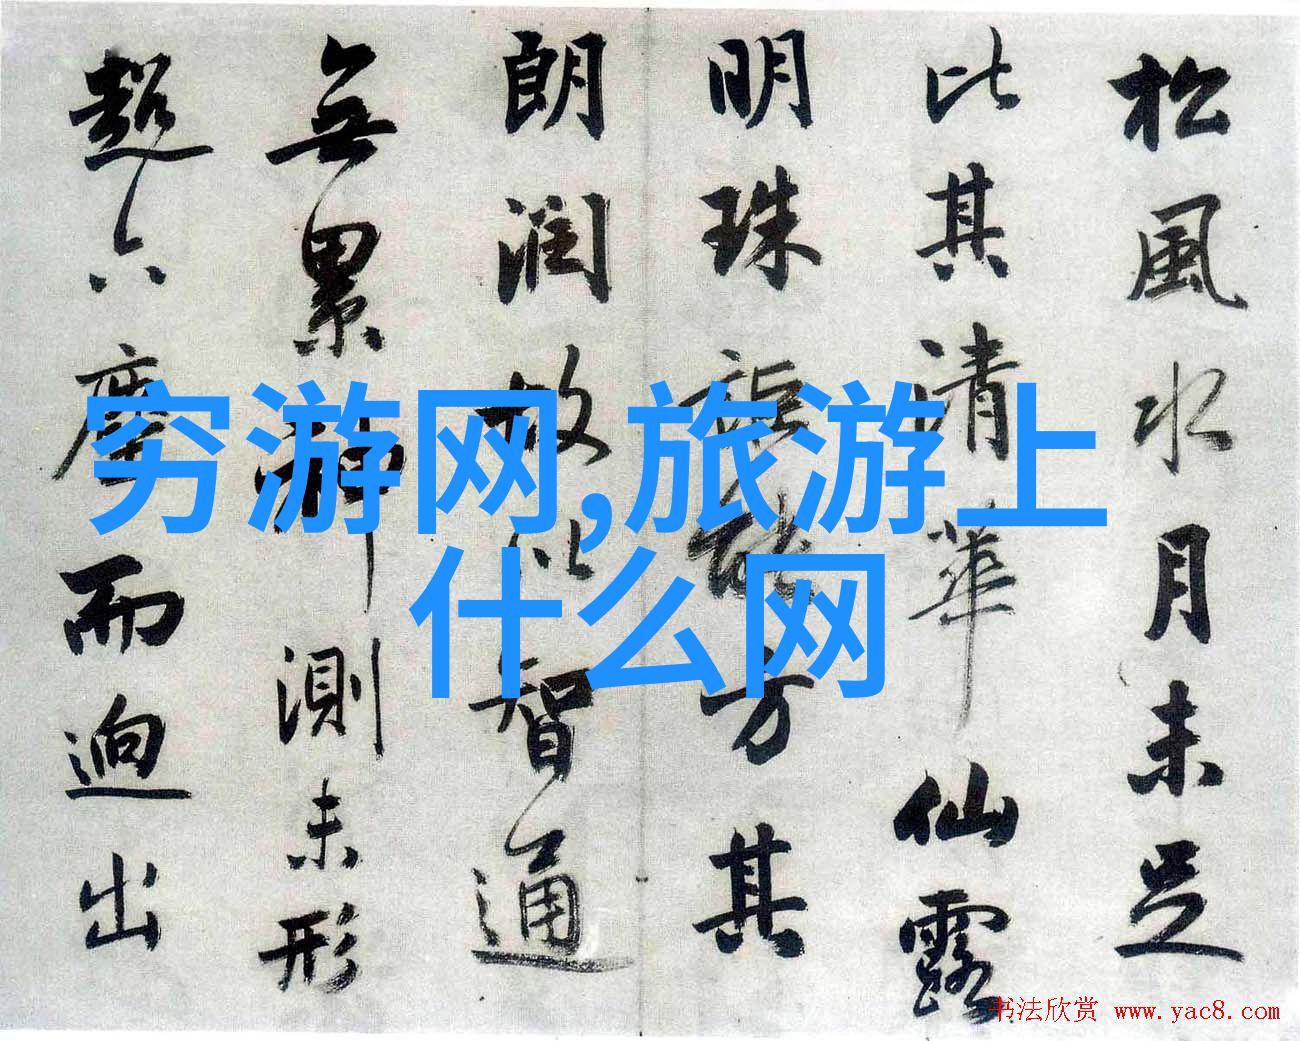 松風水月未足
比其清華仙露
明珠詎能方其
朗潤故以智通
無累神測未形
超六塵而迥出
穷游网,旅游上
什么网
书法欣赏 www.yac8.com